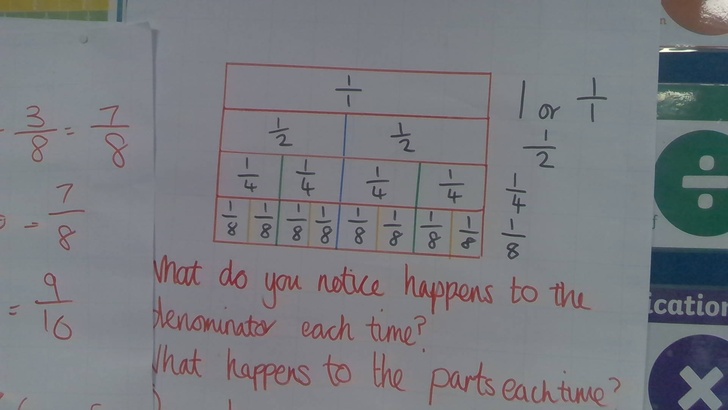 3/8 = 7/8
= 7/8
= 9/10
1/1
1/2 1/2
1/4 1/4 1/4 1/4
1/8 1/8 1/8 1/8 1/8 1/8 1/8 1/8
1 or 1/1
1/2
1/4
1/8
What do you notice happens to the
denominator each time?
What happens to the parts each time?
ication